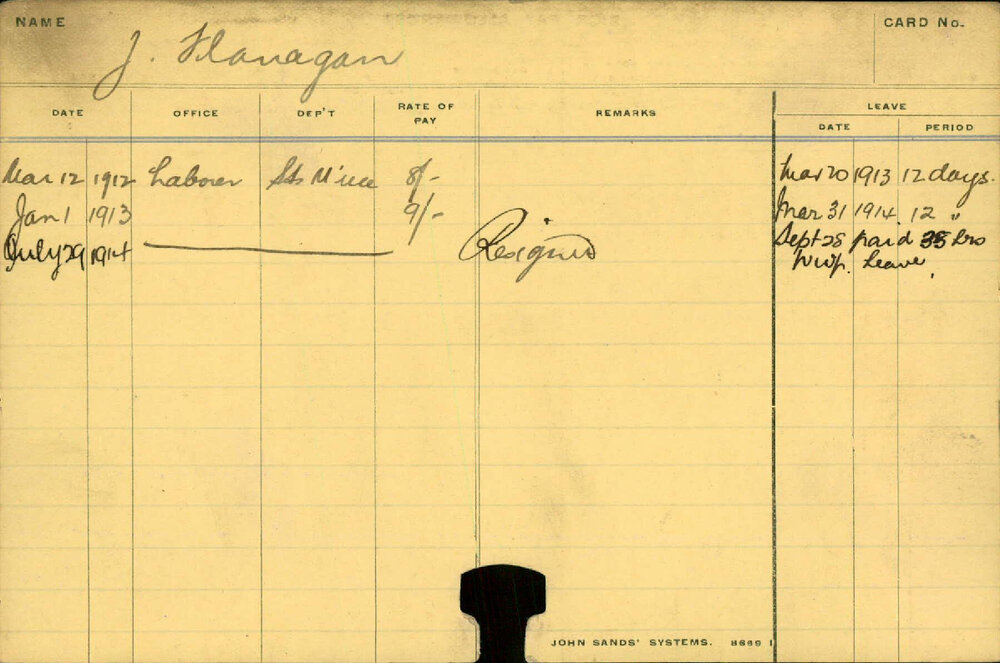 NAME
CARD No.
J. Flanagan
DATE OFFICE DEP'T RATE OF PAY REMARKS LEAVE
DATE PERIOD
Mar 12 1912 Laborer Sts M'nce 8/- Mar 20 1913 12 days.
Jan 1 1913 9/- Mar 31 1914 12 "
July 29 1914 Resigned Sept 28 paid hrs
Leave
JOHN SANDS' SYSTEMS. 8669